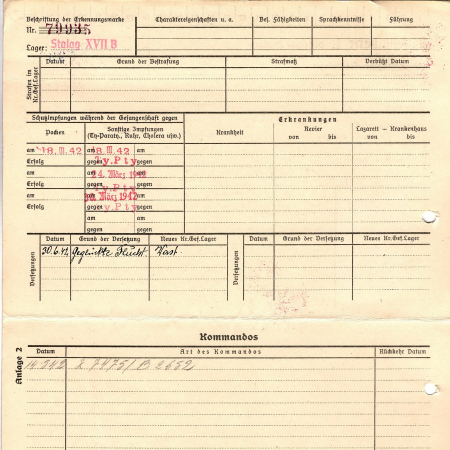 Beschriftung der Erkennungsmarke
Nr. 79935
Lager: Stalag XVII B
Charaktereigenschaften u. a.
Bes. Fähigkeiten
Sprachkenntnisse
Führung
Strafen im Kr.Gef.Lager
Datum
Grund der Bestrafung
Strafmaß
Verbüßt Datum
Schutzimpfungen während der Gefangenschaft gegen
Pocken
Sonstige Impfungen
(Ty-Paraty., Ruhr, Cholera usw.)
am 18. III. 42
am 18. III. 42
Erfolg
gegen Ty. P ty
am
am 24. März 1942
Erfolg
gegen Ty. P ty
am
am März 1942
Erfolg
gegen Ty. P ty
am
gegen
am
gegen
Erkrankungen
Krankheit
Revier
von bis
Lazarett - Krankenhaus
von bis
Versetzungen
Datum
Grund der Versetzung
Neues Kr.Gef.Lager
30.6.42 Geglückte Flucht.
Versetzungen
Datum
Grund der Versetzung
Neues Kr.Gef.Lager
Kommandos
Anlage 2
Datum
Art des Kommandos
Rückkehr Datum